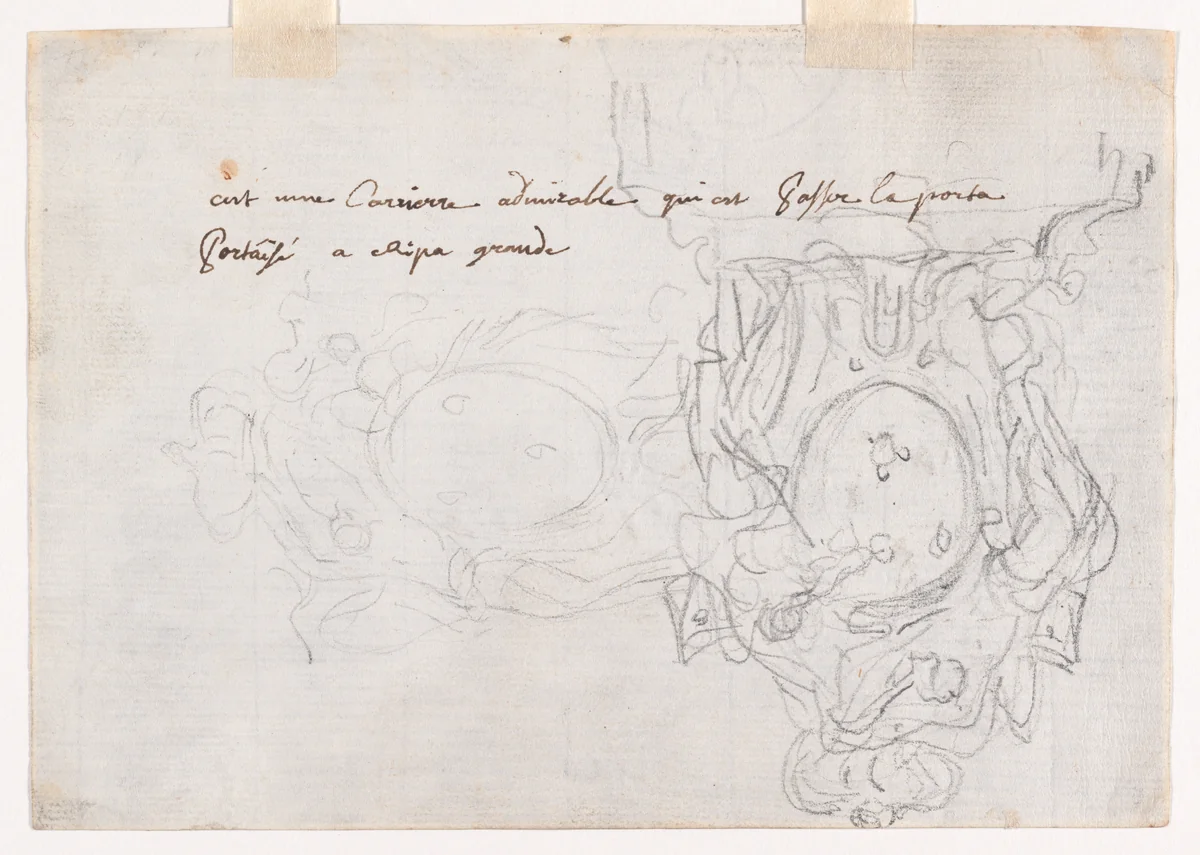 cest une Carrierre admirable qui est Passer la porta
Portaisé a Ripa grande